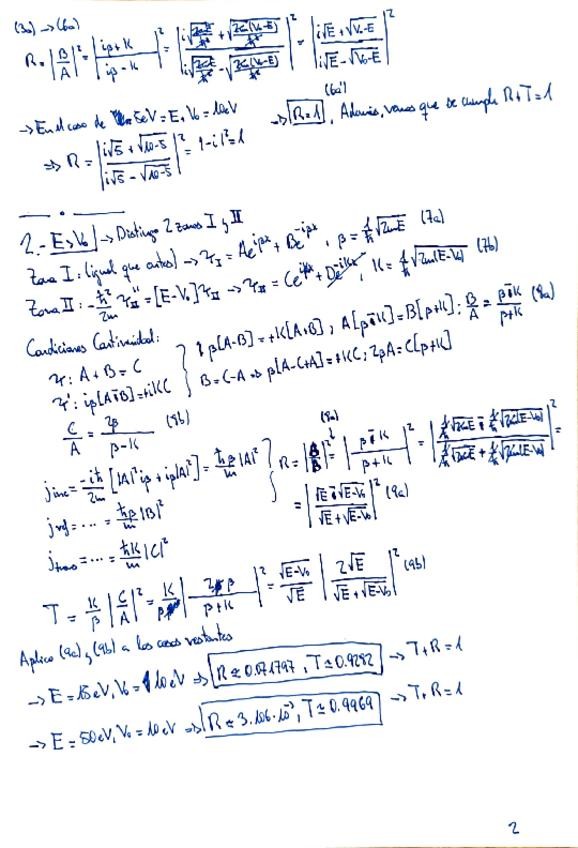 (3a) → (6a)
R = |B/A|² = |(iβ+K)/(iβ-K)|² = |(i√(2mE/ħ²) + √(2m(V₀-E)/ħ²))/(i√(2mE/ħ²) - √(2m(V₀-E)/ħ²))|² = |(i√E + √(V₀-E))/(i√E - √(V₀-E))|²
(6a')
→ En el caso de 5eV = E, V₀ = 10eV → R=1, Además, vemos que se cumple R+T=1
⇒ R = |(i√5 + √(10-5))/(i√5 - √(10-5))|² = |-i|² = 1
2.- E>V₀ → Distingo 2 zonas I y II
Zona I: (igual que antes) → Ψ_I = Ae^{iβx} + Be^{-iβx}, β = (1/ħ)√(2mE) (7a)
Zona II: -(ħ²/2m) Ψ_II'' = [E-V₀]Ψ_II → Ψ_II = Ce^{iKx} + De^{-iKx}, K = (1/ħ)√(2m(E-V₀)) (7b)
Condiciones Continuidad:
Ψ: A + B = C
Ψ': iβ[A-B] = +iKC
β[A-B] = +K[A+B]; A[β-K] = B[β+K]; B/A = (β-K)/(β+K) (8a)
B = C-A ⇒ β[A-C+A] = +KC; 2βA = C[β+K]
C/A = 2β/(β-K) (8b)
j_inc = (-iħ/2m) [|A|² iβ + iβ|A|²] = (ħβ/m)|A|²
j_ref = ... = (ħβ/m)|B|²
j_trans = ... = (ħK/m)|C|²
(8a)
R = |A/B|² = |(β-K)/(β+K)|² = |((1/ħ)√(2mE) - (1/ħ)√(2m(E-V₀)))/((1/ħ)√(2mE) + (1/ħ)√(2m(E-V₀)))|² =
= |(√E - √(E-V₀))/(√E + √(E-V₀))|² (9a)
T = (K/β) |C/A|² = (K/β) |2β/(β+K)|² = (√(E-V₀)/√E) |2√E/(√E + √(E-V₀))|² (9b)
Aplico (9a) y (9b) a los casos restantes
→ E = 15eV, V₀ = 10eV ⇒ R ≈ 0.071797, T ≈ 0.9282 → T+R=1
→ E = 50eV, V₀ = 10eV ⇒ R ≈ 3.106·10⁻³, T ≈ 0.9969 → T+R=1
2